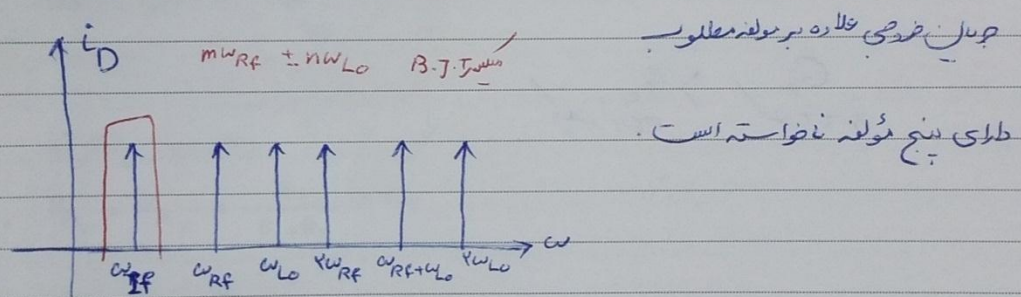 جریان خروجی علاوه بر مولفه مطلوب
دارای پنج مؤلفه ناخواسته است.
i_D
mω_Rf ± nω_Lo میکسر B.J.T
ω_If ω_Rf ω_Lo ۲ω_Rf ω_Rf+ω_Lo ۲ω_Lo ω